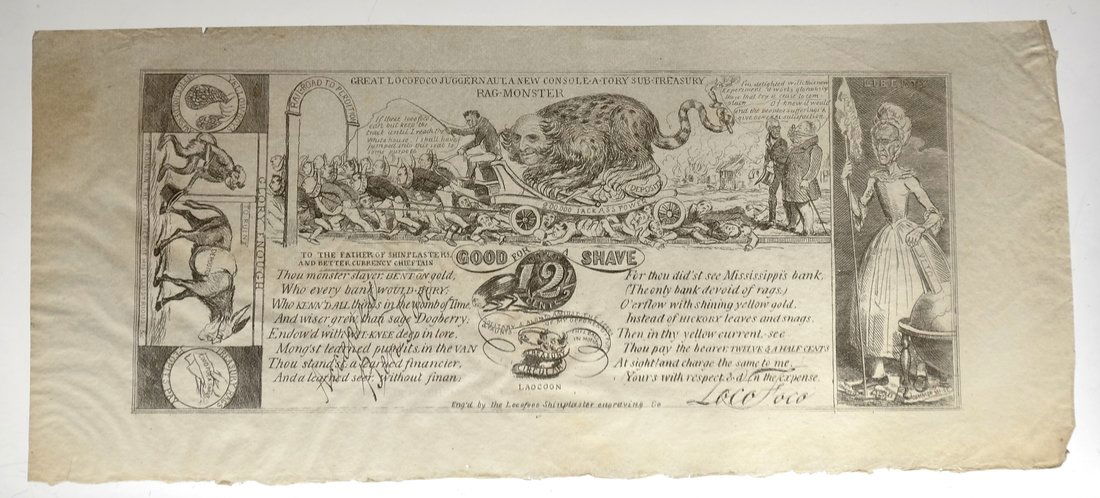 GREAT LOCOFOCO JUGGERNAUT, A NEW CONSOLE-A-TORY SUB-TREASURY
RAG-MONSTER
RAILROAD TO PERDITION
If these locofoco's
can but keep the
track until I reach the
White house I shall have
jumped into this seat to
some purpose
I'm delighted with this new
experiment it works gloriously
DEPOSIT
100,000 JACKASS POWER
LIBERTY
GLORY ENOUGH
TO THE FATHER OF SHINPLASTERS,
AND BETTER CURRENCY CHIEFTAIN
GOOD FOR A SHAVE
12
CENTS
Thou monster slayer, BENT ON gold,
Who every bank WOULD-BURY,
Who KENN'D ALL things in the womb of time,
And wiser grew than sage Dogberry,
Endow'd with WIT-KNEE deep in lore,
Mongst learned pundits, in the VAN
Thou stand'st a learned financier,
And a learned seer, without finan,
LAOCOON
For thou did'st see Mississippi's bank,
(The only bank devoid of rags.)
O'erflow with shining yellow gold.
Instead of HICKORY leaves and snags.
Then in thy yellow current-see
Thou pay the bearer TWELVE & A HALF CENTS
At sight! and charge the same to me
Yours with respect &d___n the expense.
Loco Foco
Eng'd by the Locofoco Shinplaster engraving Co